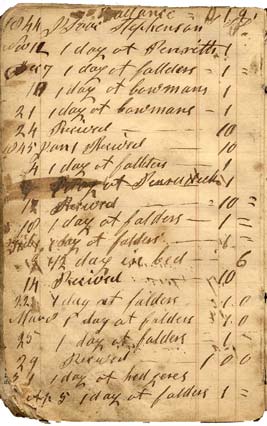 1844 Isaac Stephenson
Nov 12 1 day at Penreth 1
Dec 7 1 day at fallders - 1 =
10 1 day at bowmans - 1
21 1 day at bowmans - 1
24 Recived - 10
1845 Jan 1 Recived - 10
4 1 day at fallders - 1
at 1
12 Recived - 10
18 1 day at falders - 1 =
1 day at falders =
1/2 day in bed - 6
14 Recived 10
22 1 day at falders - 1.0
Mar 8 1 day at falders - 1.0
25 1 day at falders - 1
29 Recived 1 0 0
1 day at
5 1 day at falders 1 =